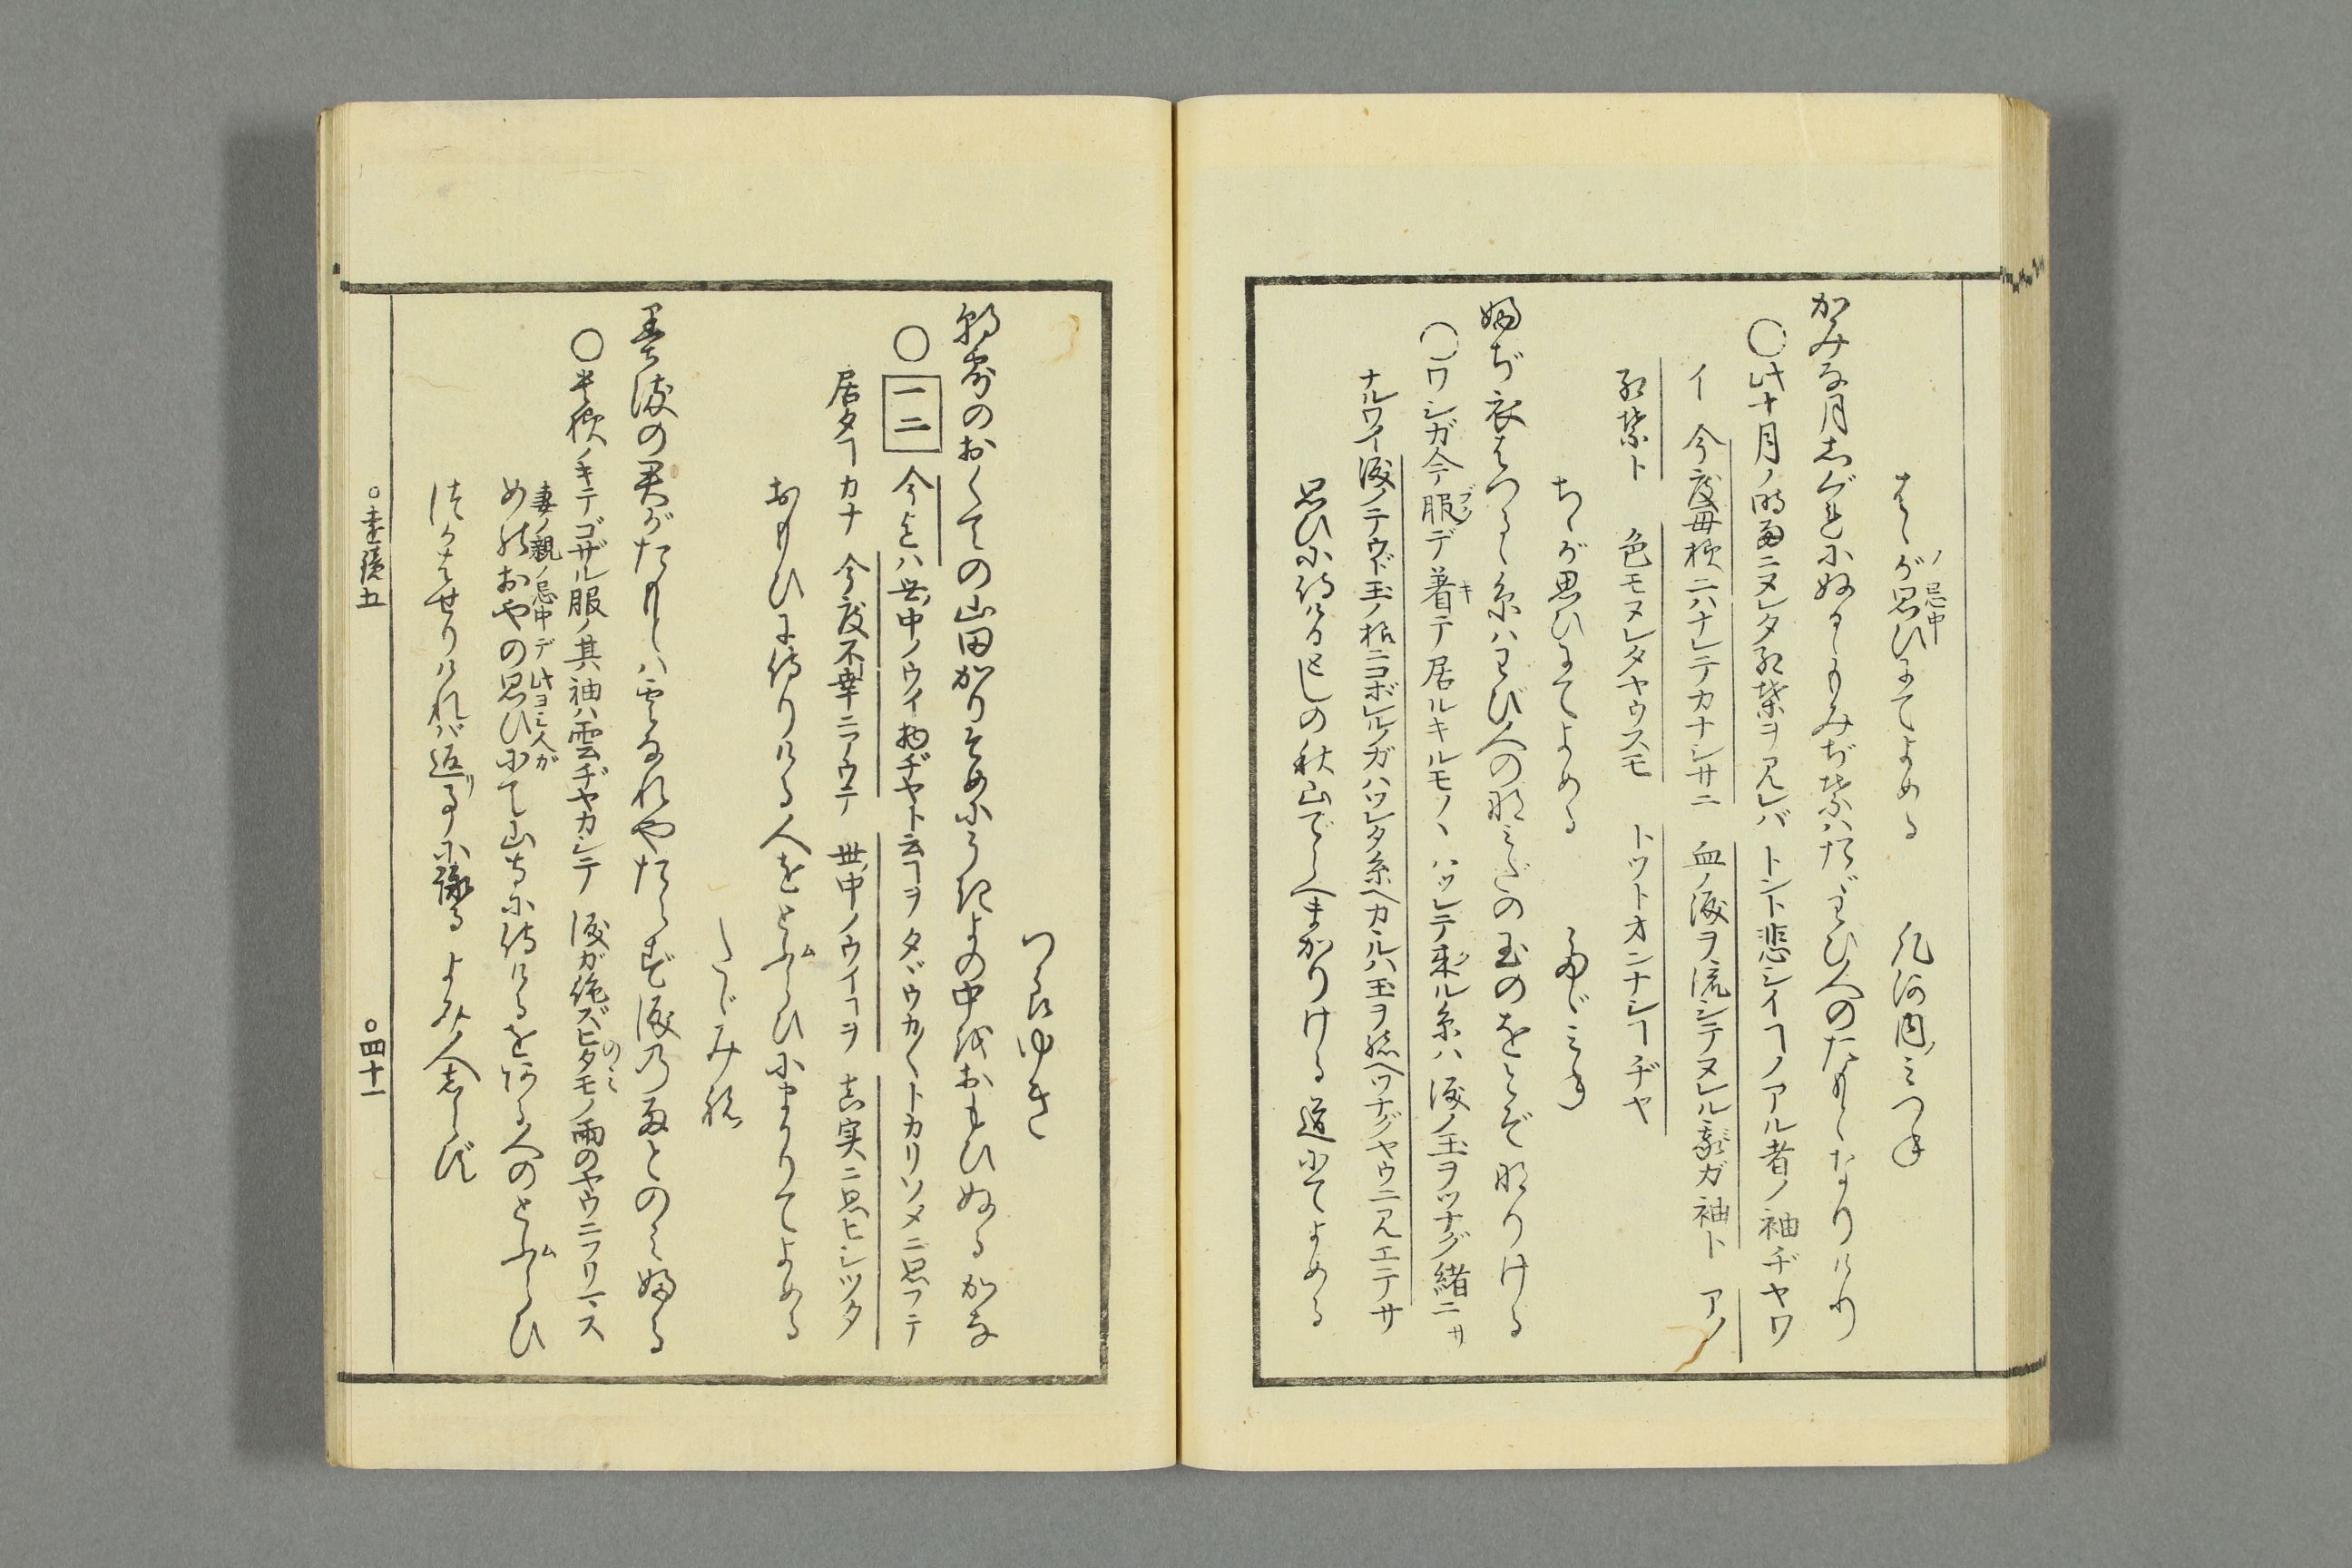 はゝが思ひにてよめる 凡河内みつね
ノ忌中
かみな月しぐれにぬるゝもみぢ葉はたゞわび人のたもとなりけり
○此十月ノ時雨ニヌレタ紅葉ヲ見レバ トント悲シイヿノアル者ノ袖ヂヤワ
イ 今度母樣ニハナレテカナシサニ 血ノ涙ヲ流シテヌレル我ガ袖ト アノ
紅葉ト 色モヌレタヤウスモ トツトオンナシヿヂヤ
ちゝが思ひにてよめる たゞみね
ふぢ衣はつるゝ糸はわび人の涙の玉のをとぞなりける
○ワシガ今服デ著テ居ルキルモノヽ ハツレテ來ル糸ハ 涙ノ玉ヲツナグ緒ニサ
ブク キ
ナルワイ 涙ノテウド玉ノ樣ニコボレルノガハツレタ糸ヘカヽルハ玉ヲ緒ヘツナグヤウニ見エテサ
思ひに侍けるとしの秋山でらへまかりける道にてよめる
つらゆき
朝露のおくての山田かりそめにうき世の中をおもひぬるかな
○一二 今まとハ世ノ中ノウイ物ヂヤト云ヿヲ タヾウカ〳〵トカリソメニ思フテ
居タヿカナ 今度不幸ニアウテ 世ノ中ノウイヿヲ 真実ニ思ヒシツタ
おもひに侍りける人をとふらひにまかりてよめる
たゞみね
墨染の君がたもとは雲なれやたえず涙の雨とのみふる
○其樣ノキテゴザル服ノ其袖ハ雲ヂヤカシテ 涙が絶ズヒタモノ雨のヤウニフリマス
のみ
妻ノ親ノ忌中デ 此ヨミ人が
めのおやの思ひにて山寺に侍けるをある人のとふらひ
つかはせりければ返事に讀る よみ人しらず
○遠鏡五 ○四十一